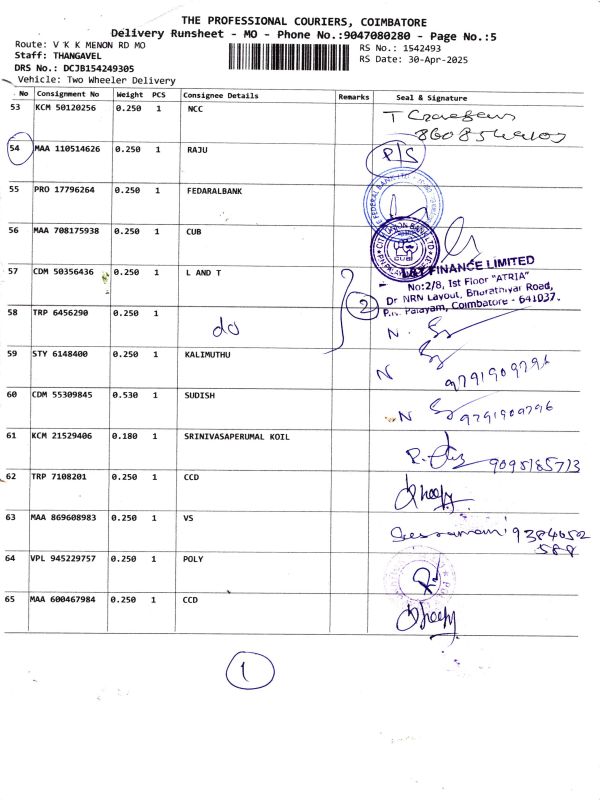 THE PROFESSIONAL COURIERS, COIMBATORE
Delivery Runsheet - MO - Phone No.:9047080280 - Page No.:5
Route: V K K MENON RD MO
RS No.: 1542493
Staff: THANGAVEL
RS Date: 30-Apr-2025
DRS No.: DCJB154249305
Vehicle: Two Wheeler Delivery
No Consignment No Weight PCS Consignee Details Remarks Seal & Signature
53 KCM 50120256 0.250 1 NCC
54 MAA 110514626 0.250 1 RAJU P/S
55 PRO 17796264 0.250 1 FEDARALBANK
56 MAA 708175938 0.250 1 CUB
57 CDM 50356436 0.250 1 L AND T
L&T FINANCE LIMITED
No:2/8, Ist Floor "ATRIA"
Dr NRN Layout, Bharathiyar Road,
P.N. Palayam, Coimbatore - 641037.
2
58 TRP 6456290 0.250 1 do N.
59 STY 6148400 0.250 1 KALIMUTHU N
9791909796
60 CDM 55309845 0.530 1 SUDISH N 9791909796
61 KCM 21529406 0.180 1 SRINIVASAPERUMAL KOIL
9095185713
62 TRP 7108201 0.250 1 CCD
63 MAA 869608983 0.250 1 VS
9384652
588
64 VPL 945229757 0.250 1 POLY
65 MAA 600467984 0.250 1 CCD
1